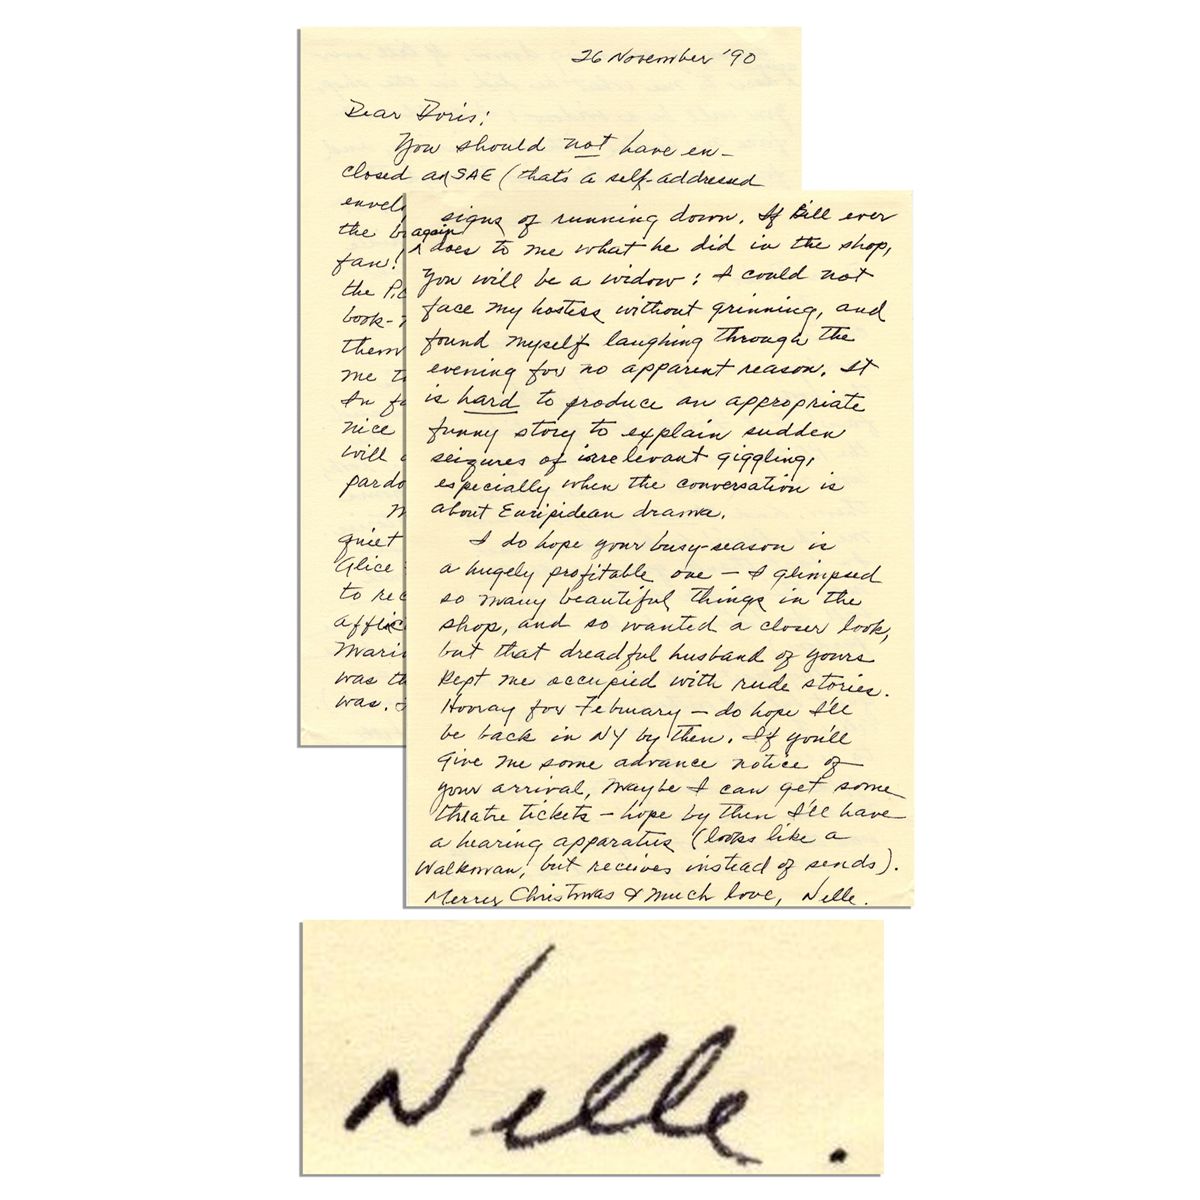 26 November '90
Dear Doris:
You should not have en-
closed an SAE (that's a self-addressed
envel
the b
fan!
the Pic
book-
them
me t
In fa
nice
will
pardo
M
quiet
Alice
to rec
afflic
Mari
was th
was.
signs of running down. If Bill ever
again
^ does to me what he did in the shop,
you will be a widow: I could not
face my hostess without grinning, and
found myself laughing through the
evening for no apparent reason. It
is hard to produce an appropriate
funny story to explain sudden
seizures of irrelevant giggling,
especially when the conversation is
about Euripidean drama.
I do hope your busy-season is
a hugely profitable one — I glimpsed
so many beautiful things in the
shop, and so wanted a closer look,
but that dreadful husband of yours
kept me occupied with rude stories.
Hooray for February — do hope I'll
be back in NY by then. If you'll
give me some advance notice of
your arrival, maybe I can get some
theatre tickets — hope by then I'll have
a hearing apparatus (looks like a
Walkman, but receives instead of sends).
Merry Christmas & much love, Nelle.
Nelle.